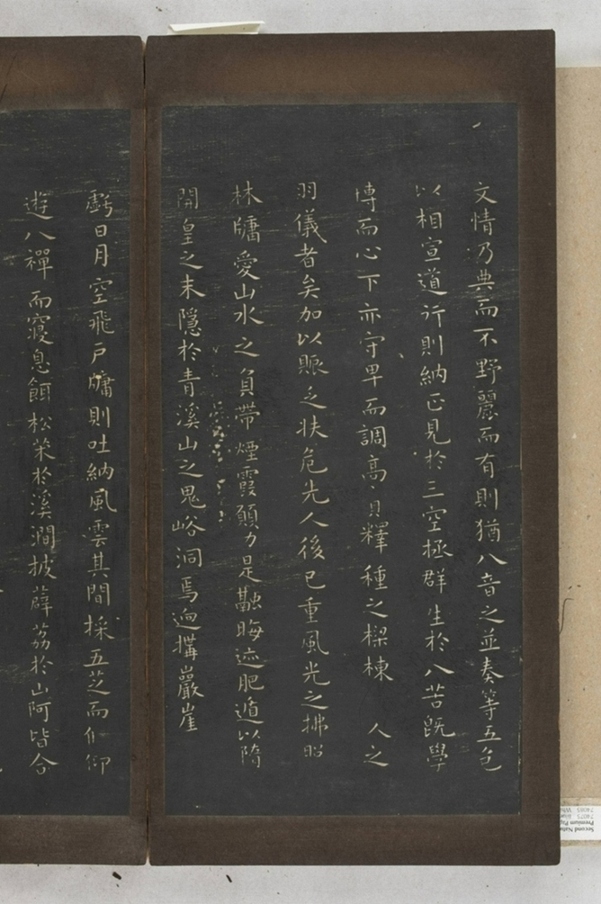 文情乃典而不野麗而有則猶八音之並奏等五色
以相宣道行則納正見於三空極群生於八苦既學
博而心下亦守卑而調高實釋種之樑棟 人之
羽儀者矣加以賑乏扶危先人後已重風光之拂照
林牖愛山水之負帶煙霞願力是融晦迹肥遁以隋
開皇之末隱於青溪山之鬼峪洞焉迥構巖崖
虧日月空飛戶牖則吐納風雲其間採五芝而偃仰
遊八禪而寢息餌松茱於溪澗披薜荔於山阿皆合